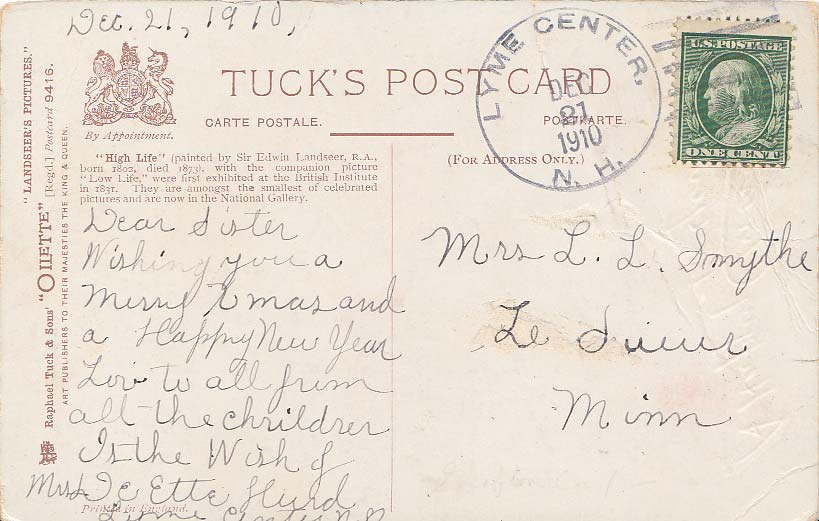 Dec. 21, 1910,
"LANDSEER'S PICTURES."
[Regd.] Postcard 9416.
Raphael Tuck & Sons' "OILETTE"
ART PUBLISHERS TO THEIR MAJESTIES THE KING & QUEEN.
By Appointment.
TUCK'S POST CARD
CARTE POSTALE. POSTKARTE.
(FOR ADDRESS ONLY.)
LYME CENTER,
DEC
21
1910
N. H.
U.S. POSTAGE
ONE CENT
"High Life" (painted by Sir Edwin Landseer, R.A.,
born 1802, died 1873), with the companion picture
"Low Life," were first exhibited at the British Institute
in 1831. They are amongst the smallest of celebrated
pictures and are now in the National Gallery.
Dear Sister
Wishing you a
Merry Xmas and
a Happy New Year
Lov to all from
all the chrildren
Is the Wish of
Mrs De Ette Hurd
Lyme Center N.H.
Printed in England.
Mrs L. L. Smythe
Le Sueur
Minn